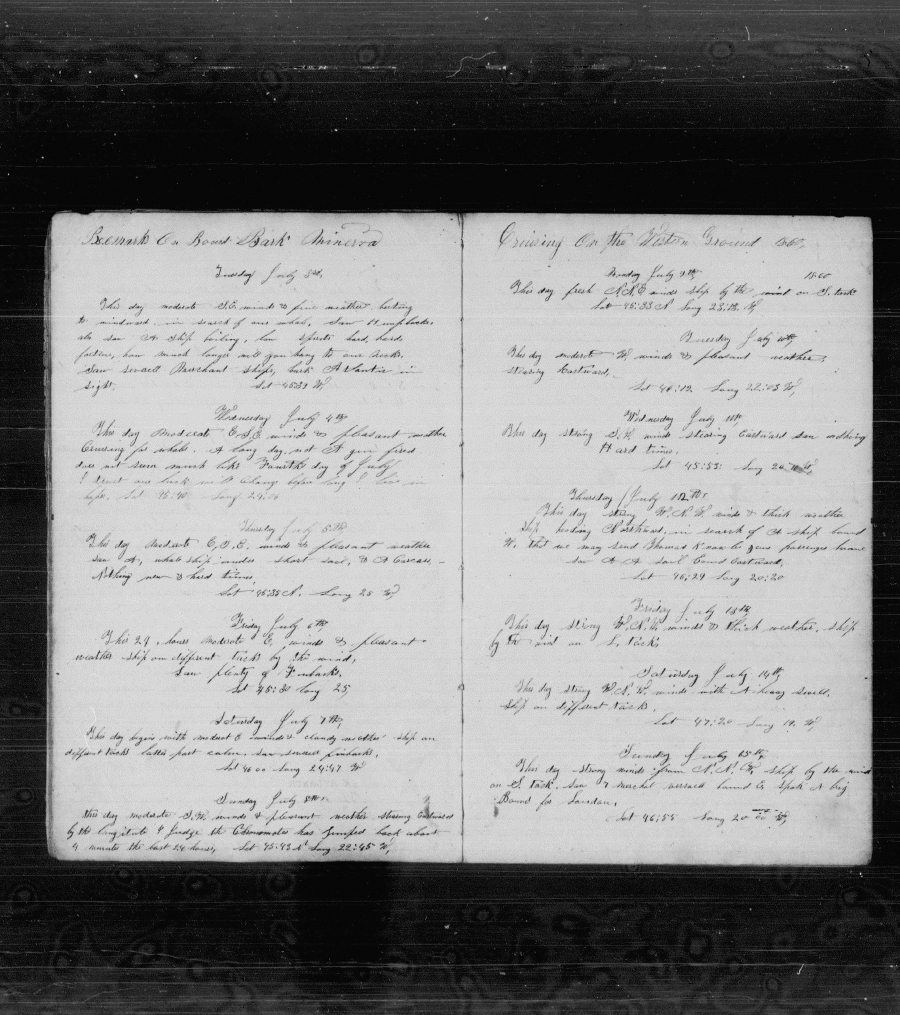 Remarks On Board Bark Minerva
Tuesday July 3rd
This day moderate S.E. winds & fine weather beating
to windward in search of one whale. Saw
also saw A Ship boiling, low spirits hard, hard
fortune, how much longer will you hang to our
Saw several Merchant ships, bark Atlantic in
sight. Lat 45:39 N
Wednesday July 4th
This day Moderate E.S.E winds & pleasant weather
Cruising for whale. A long day, not A gun fired
does not seem much like Fourth day of July
I trust our luck will change before long! live in
hope. Lat
Thursday July 5th
This day Moderate E.S.E. winds & pleasant weather
saw A, whale ship under short sail, & A Carcase
Nothing new & hard times
Lat 45:35 N. Long 25 W
Friday July 6th
This 24 hours moderate E. winds & pleasant
weather ship on different tacks by the wind,
Saw plenty of Finbacks.
Lat 45:30 long 25
Saturday July 7th,
This day begins with moderate E winds & cloudy weather ship on
different tacks latter part calm. saw several finbacks.
Lat 46 00 Long 24:47 W
Sunday July 8th
this day moderate S.W. winds & pleasant weather steering Eastward
by the longitude I judge the Chronometer has jumped back about
4 minutes the last 24 hours, Lat 45:43 N Long 22:45 W,
Cruising On the Western Ground
Monday July 9th 1860
This day fresh N.N.E winds ship by the wind on S. tack
Lat 45:33 N Long 23:13 W
Tuesday July 10th
This day moderate W. winds & pleasant weather,
steering Eastward.
Lat 46:12. Long 22:03 W,
Wednesday July 11th,
This day strong S.W. winds steering Eastward saw nothing
Hard times.
Lat 45:53: Long
Thursday July 12th
This day strong W.N.W. winds & thick weather
Ship heading Northward, in search of A ship bound
W. that we may send Thomas our passenger home
saw A A sail bound Eastward.
Lat 46:29 Long 20:20
Friday July 13th
This day strong W.N.W. winds & thick weather. ship
by the wind on S. tack
Saturday July 14th
This day strong W.N.W. winds with A heavy swell.
Ship on different tack.
Lat 47:20 Long 19. W
Sunday July 15th,
This day strong winds from N.N.W. ship by the wind
on S. tack. Saw 7 merchant vessels bound E. Spoke A brig
Bound for London.
Lat 46:55 Long 20 00 W